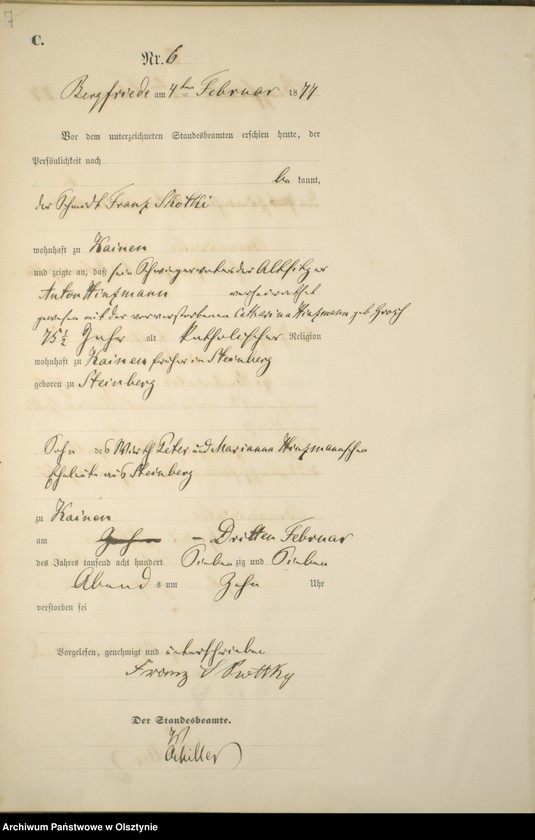 7
C.
Nr. 6
Bergfriede am 4ten Februar 1877
Vor dem unterzeichneten Standesbeamten erschien heute, der
Persönlichkeit nach
be kannt,
der Schmidt Franz Skottki
wohnhaft zu Kainen
und zeigte an, daß sein Schwiegervater der Altsitzer
Anton Hinzmann verheirathet
gewesen mit der vorverstorbenen Catharina Hinzmann geb.
75 1/2 Jahr alt katholischer Religion
wohnhaft zu Kainen früher in Steinberg
geboren zu Steinberg
Sohn des Wirth Peter und Marianna Hinzmannschen
Eheleute aus Steinberg
zu Kainen
am Dritten Februar
des Jahres tausend acht hundert Sieben zig und Sieben
Abend s um Zehn Uhr
verstorben sei
Vorgelesen, genehmigt und unterschrieben
Franz Skottky
Der Standesbeamte.
Schiller
Archiwum Państwowe w Olsztynie